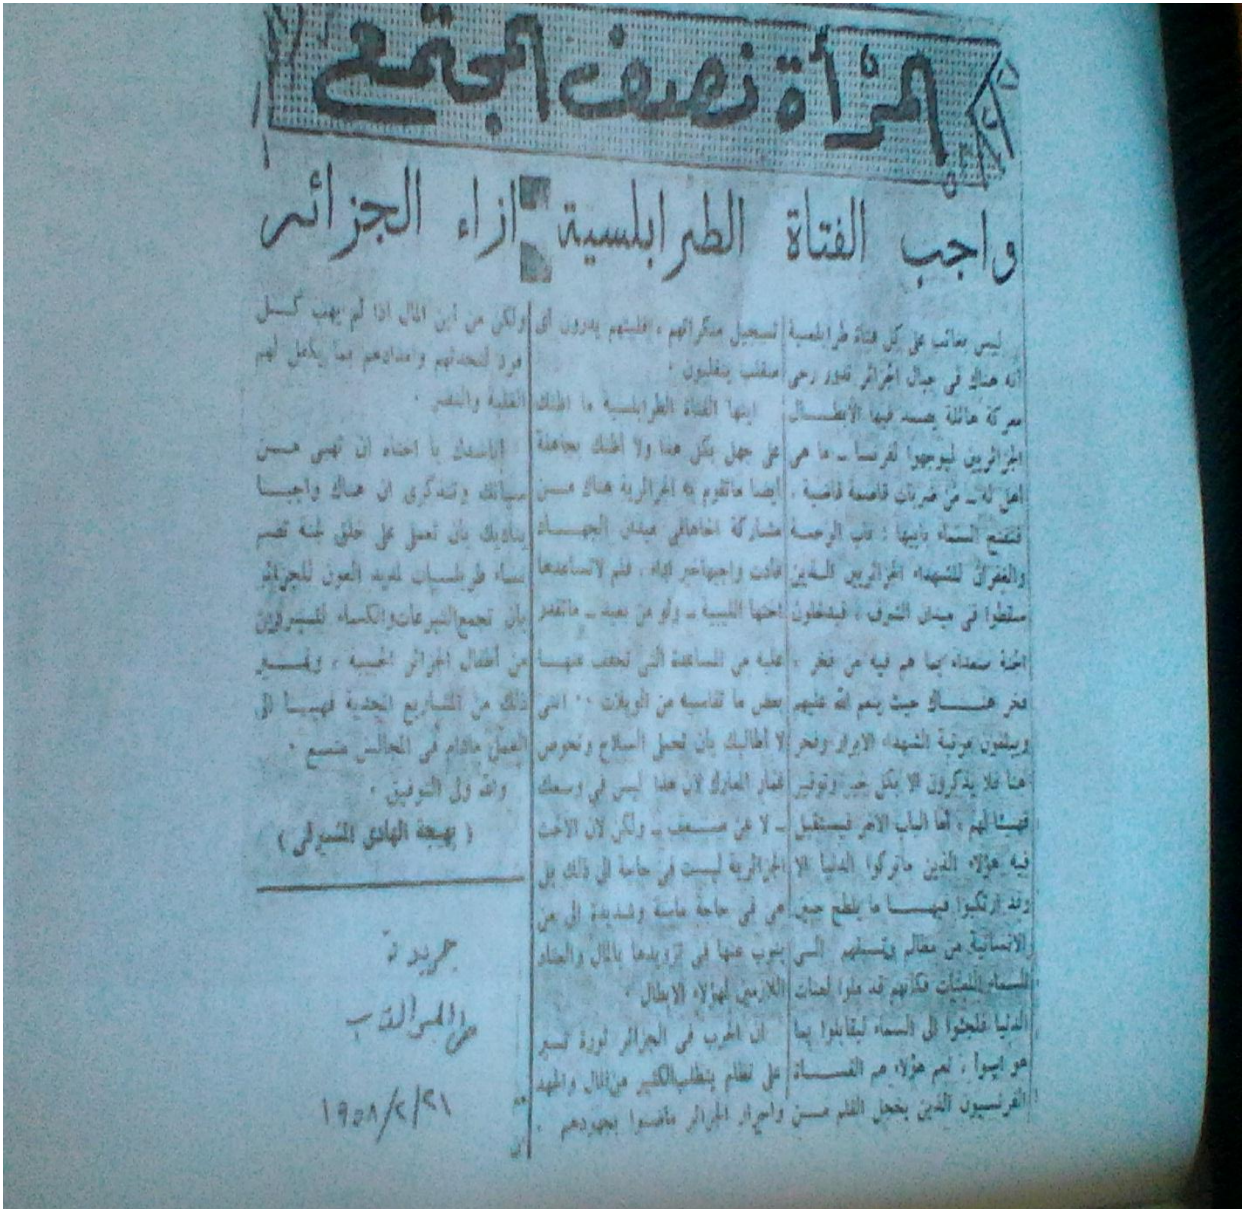 المرأة نصف المجتمع
واجب الفتاة الطرابلسية ازاء الجزائر
ليس بغائب على كل فتاة طرابلسية
انه هناك في جبال الجزائر تدور رحى
معركة هائلة يصمد فيها الأبطال
الجزائريين ليوجهوا لفرنسا ـ ما هي
أهل له ـ من ضربات قاصمة قاضية .
فتفتح السماء بابيها : باب الرحمة
والغفران للشهداء الجزائريين الذين
سقطوا في ميدان الشرف ، فيدخلون
الجنة سعداء بما هم فيه من فخر ،
فخر هناك حيث ينعم الله عليهم
ويبلغون مرتبة الشهداء الابرار وفخر
هنا فلا يذكرون الا بكل خير وتوقير
فهنيئا لهم ، أما الباب الآخر فيستقبل
فيه هؤلاء الذين ماتركوا الدنيا الا
وقد ارتكبوا فيها ما يلطخ جبين
الانسانية من مظالم الى
السماء اللعنات فكأنهم قد ملوا لعنات
الدنيا فلجئوا الى السماء ليقابلوا بما
هو اسوأ ، نعم هؤلاء هم القساة
الفرنسيون الذين يخجل القلم من
تسجيل منكراتهم ، فليتهم يدرون أى
منقلب ينقلبون .
ايتها الفتاة الطرابلسية ما اظنك
على جهل بكل هذا ولا أظنك بجاهلة
أيضا ماتقوم به الجزائرية هناك من
مشاركة اخاها في ميدان الجهاد
فأدت واجبها خير اداء . فلم لاتساعدها
اختها الليبية ـ ولو من بعيد ـ ماتقدر
عليه من المساعدة التي تخفف عنها
بعض ما تقاسيه من الويلات .. انني
لا أطالبك بأن تحمل السلاح وتخوض
غمار المعارك لان هذا ليس في وسعك
ـ لا عن ضعف ـ ولكن لان الأخت
الجزائرية ليست في حاجة الى ذلك بل
هي في حاجة ماسة وشديدة الى من
ينوب عنها في تزويدها بالمال والعتاد
اللازمين لهؤلاء الابطال .
ان الحرب في الجزائر ثورة تسير
على نظام يتطلب الكثير من المال والجهد
واحرار الجزائر ماضنوا بجهودهم .
ولكن من أين المال اذا لم يهب كل
فرد لنجدتهم وامدادهم بما يكفل لهم
الغلبة والنصر .
اناشدك يا اختاه ان تهبي من
سباتك وتتذكرى ان هناك واجبا
يناديك بأن تعمل على خلق لجنة تضم
نساء طرابلسيات لمد يد العون للجزائر
بأن تجمع التبرعات والكساء للمشردين
من أطفال الجزائر الحبيبة ، ولغير
ذلك من المشاريع المجدية فهيا الى
العمل مادام في المجال متسع .
والله ولى التوفيق .
( بهيجة الهادى المشيرقي )
جريدة
طرابلس الغرب
٢١/٢/١٩٥٨